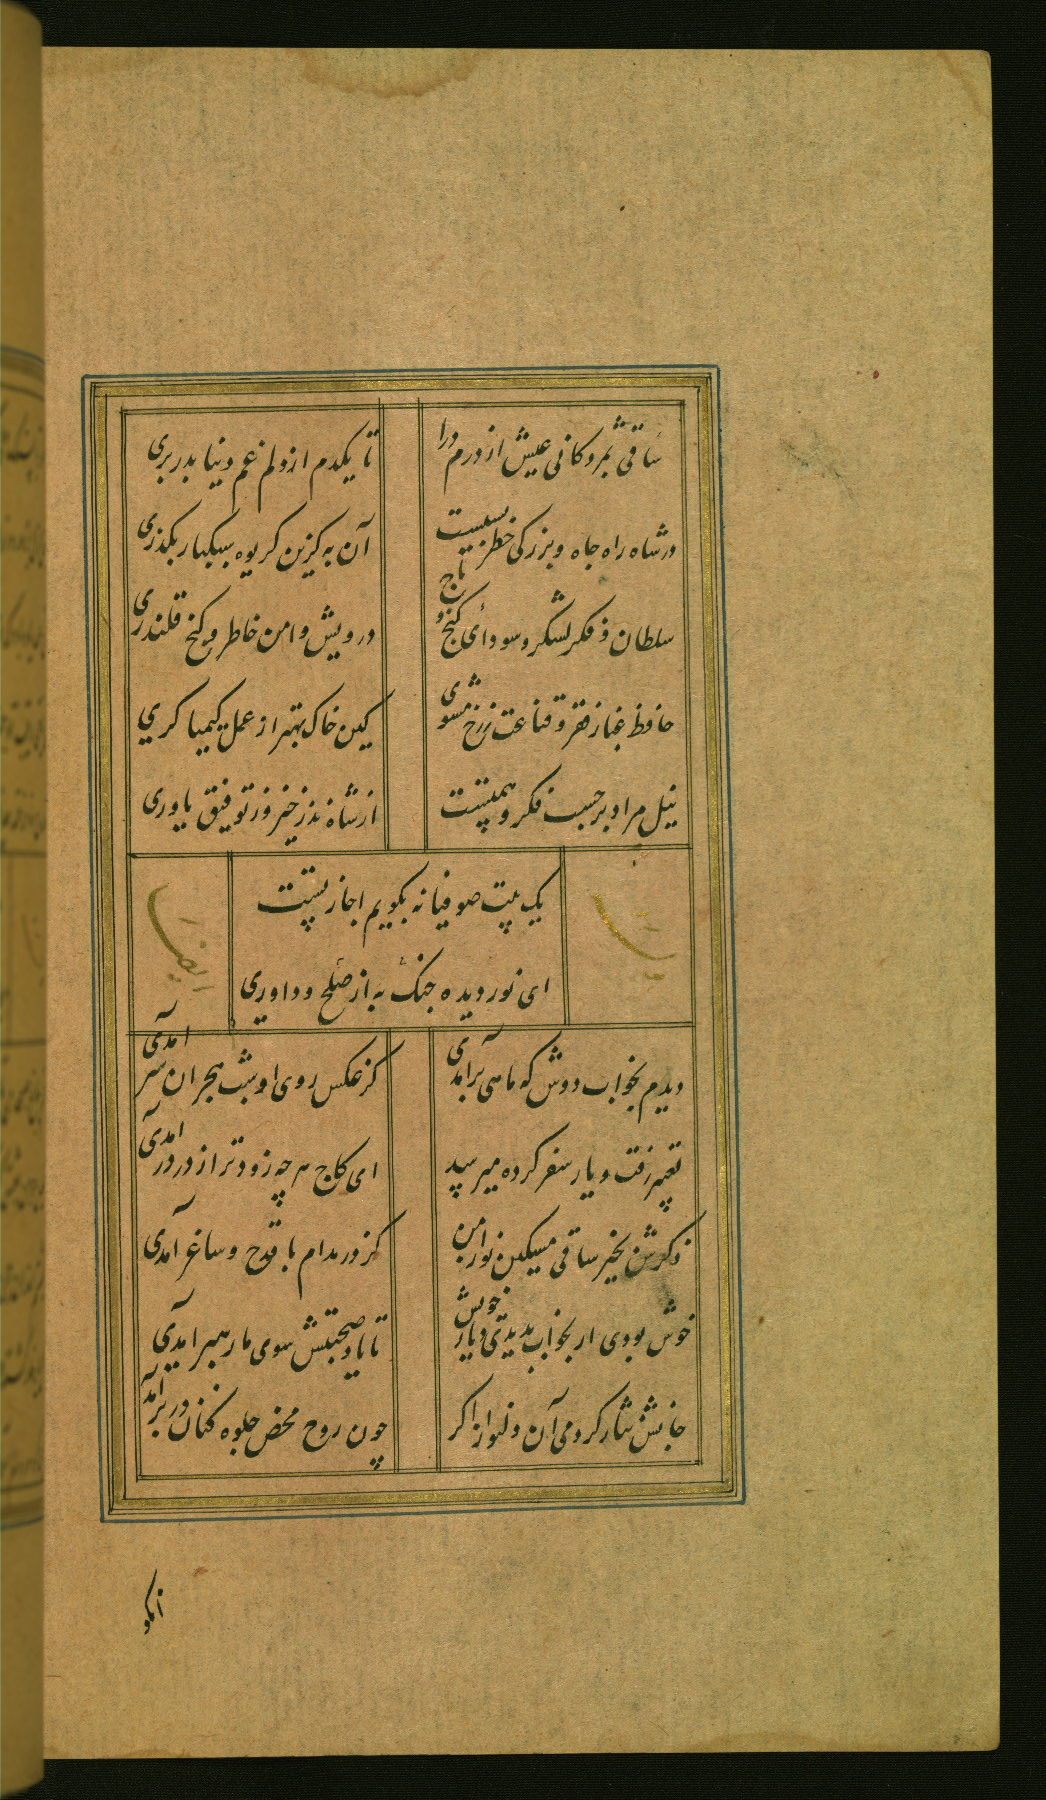 ساقی بمژدگانی عیش از درم درا
تا یکدم از دلم غم دنیا بدر بری
در شاه راه جاه و بزرگی خطر بسیست
آن به کزین کریوه سبکبار بکذری
سلطان و فکر لشکر و سودای کنج و تاج
درویش و امن خاطر و کنج قلندری
حافظ غبار فقر و قناعت ز رخ مشوی
کین خاک بهتر از عمل کیمیا کری
نیل مراد بر حسب فکر و همتست
از شاه نذر خیر و ز توفیق یاوری
یک بیت صوفیانه بکویم اجازتست
ای نور دیده جنک به از صلح و داوری
ایضا
دیدم بخواب دوش که ماهی برآمدی
کز عکس روی او شب هجران سر آمدی
تعبیر رفت و یار سفر کرده میرسید
ای کاج هر چه زودتر از در درآمدی
ذکرش بخیر ساقی مسکین نواز من
کز در مدام با قدح و ساغر آمدی
خوش بودی ار بخواب بدیدی دیار خویش
تا یاد صحبتش سوی ما رهبر آمدی
جانش نثار کردمی آن دلنواز اکر
چون روح محض جلوه کنان در بر آمدی